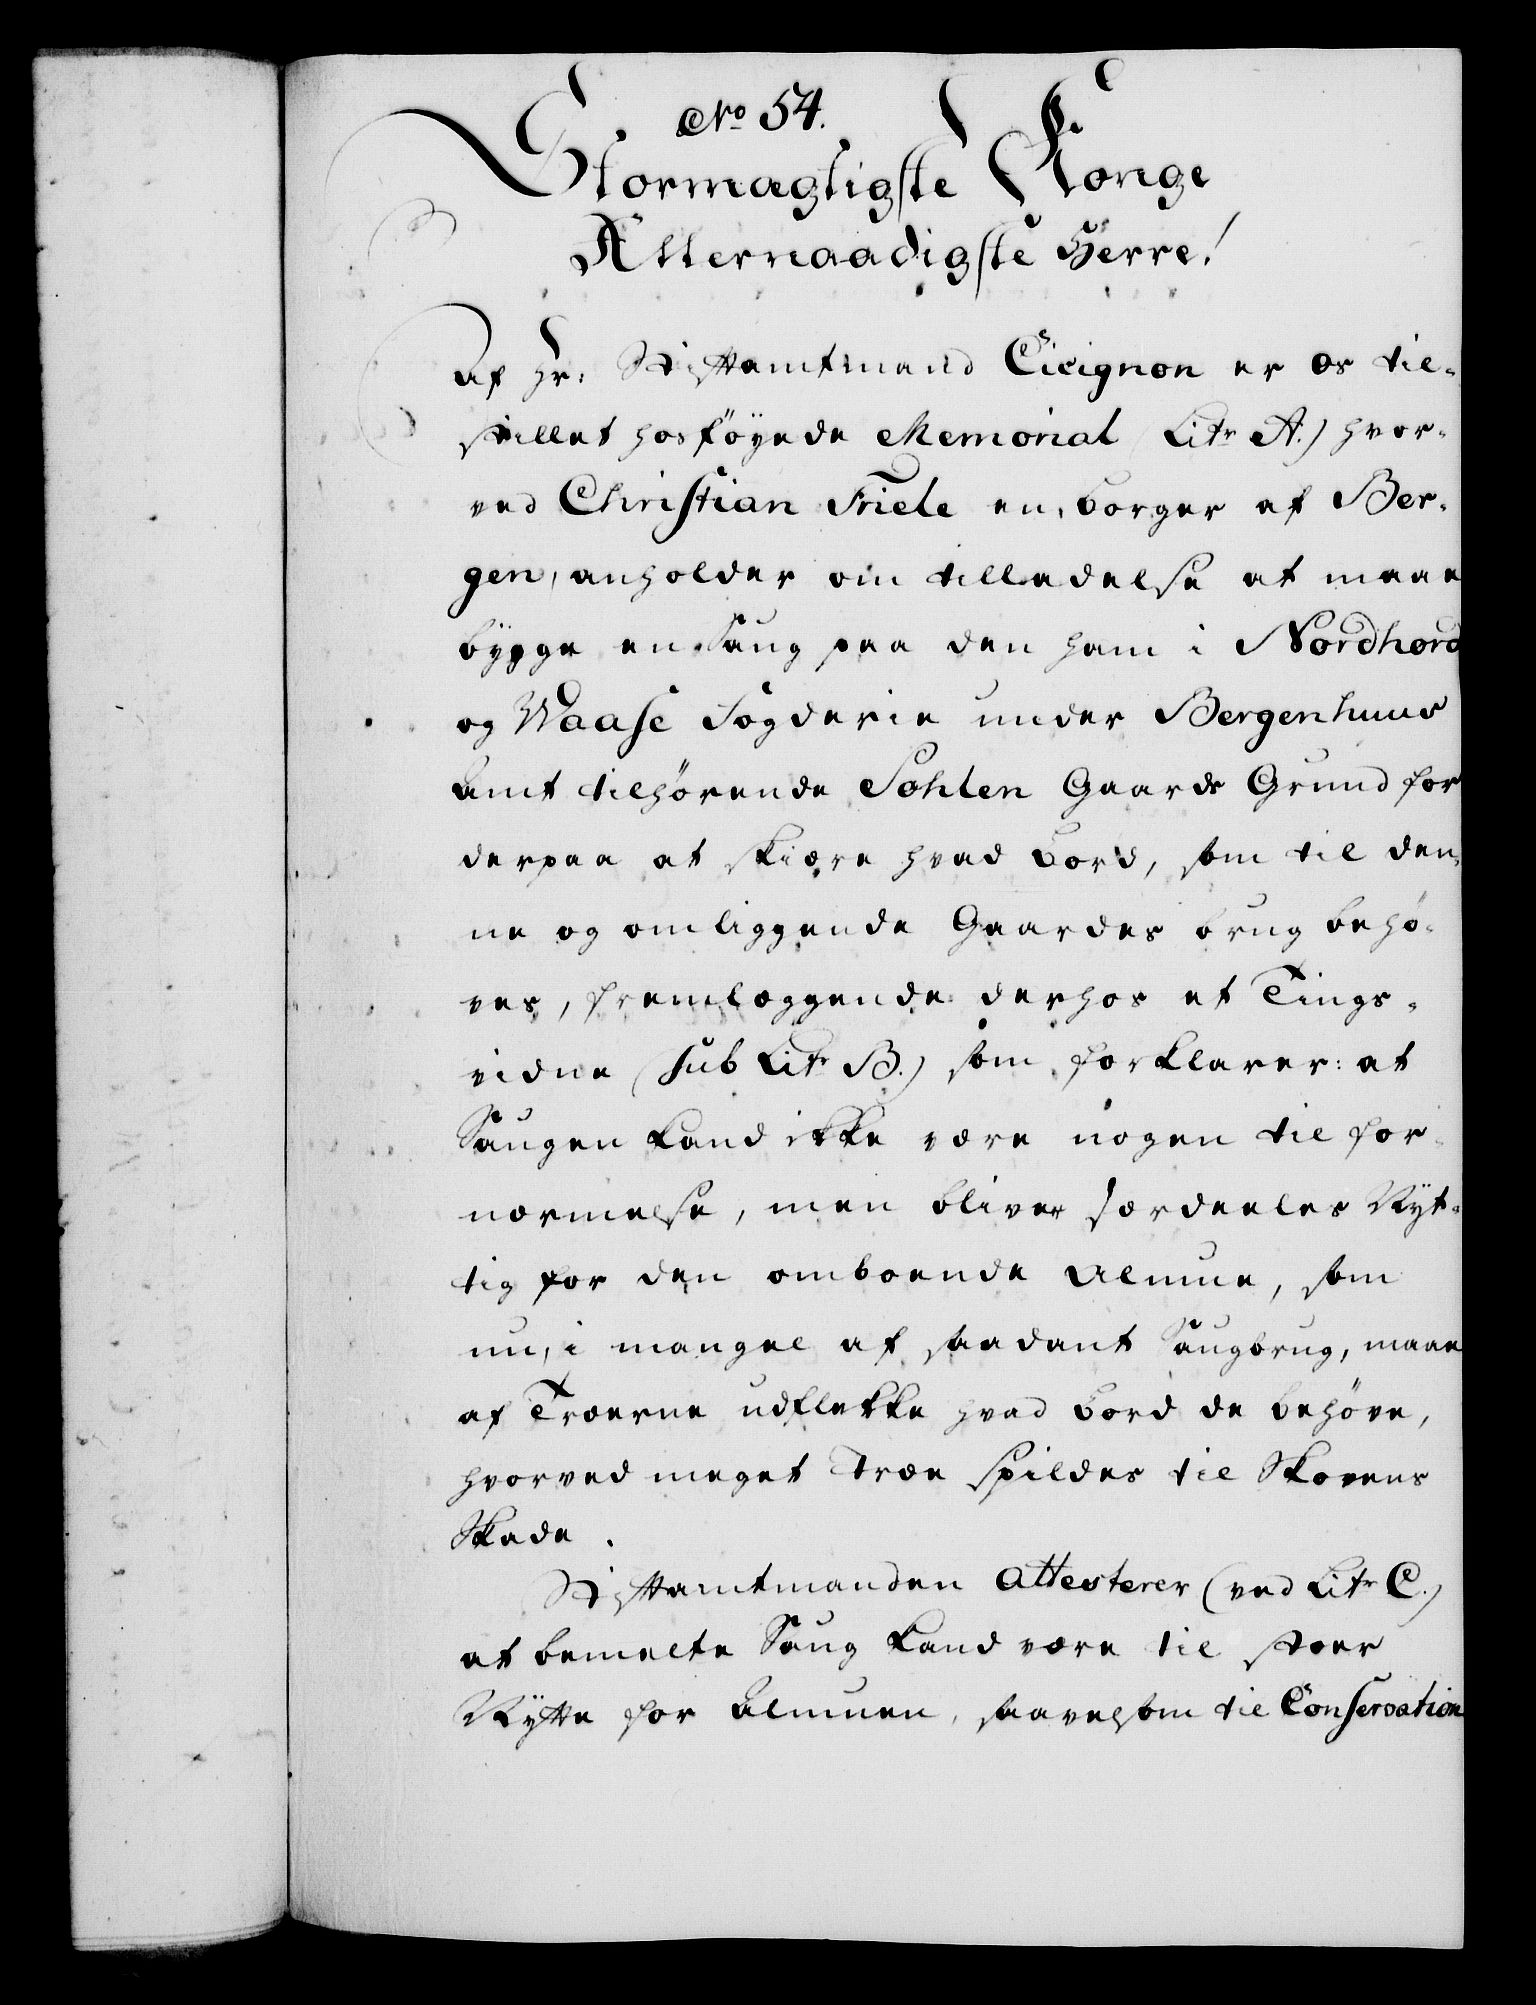 No 54.
Stormægtigste Konge
Allernaadigste Herre!
Af Hr: Stiftamtmand Cicignon er os til-
stillet hosföyede Memorial (Litr A.) hvor-
ved Christian Friele en borger af Ber-
gen, anholder om tilladelse at maae
bygge en Saug paa den ham i Nordhord
og Waase Fogderie under Bergenhuus
Amt tilhörende Sohlen Gaards Grund for
derpaa at skiære hvad Bord, som til den-
ne og omliggende Gaardes brug behö-
ves, fremlæggende derhos et Tings-
vidne (sub Litr B.) som forklarer: at
Saugen kand ikke være nogen til for-
nærmelse, men bliver særdeeles Nyt-
tig for den omboende Almue, som
nu, i mangel af saadant Saugbrug, maae
af Træerne udflekke hvad Bord de behöve,
hvorved meget Træe spildes til Skovens
Skade.
Stiftamtmanden Attesterer (ved Litr C.)
at bemelte Saug kand være til stoer
Nytte for Almuen, saavelsom til Conservation